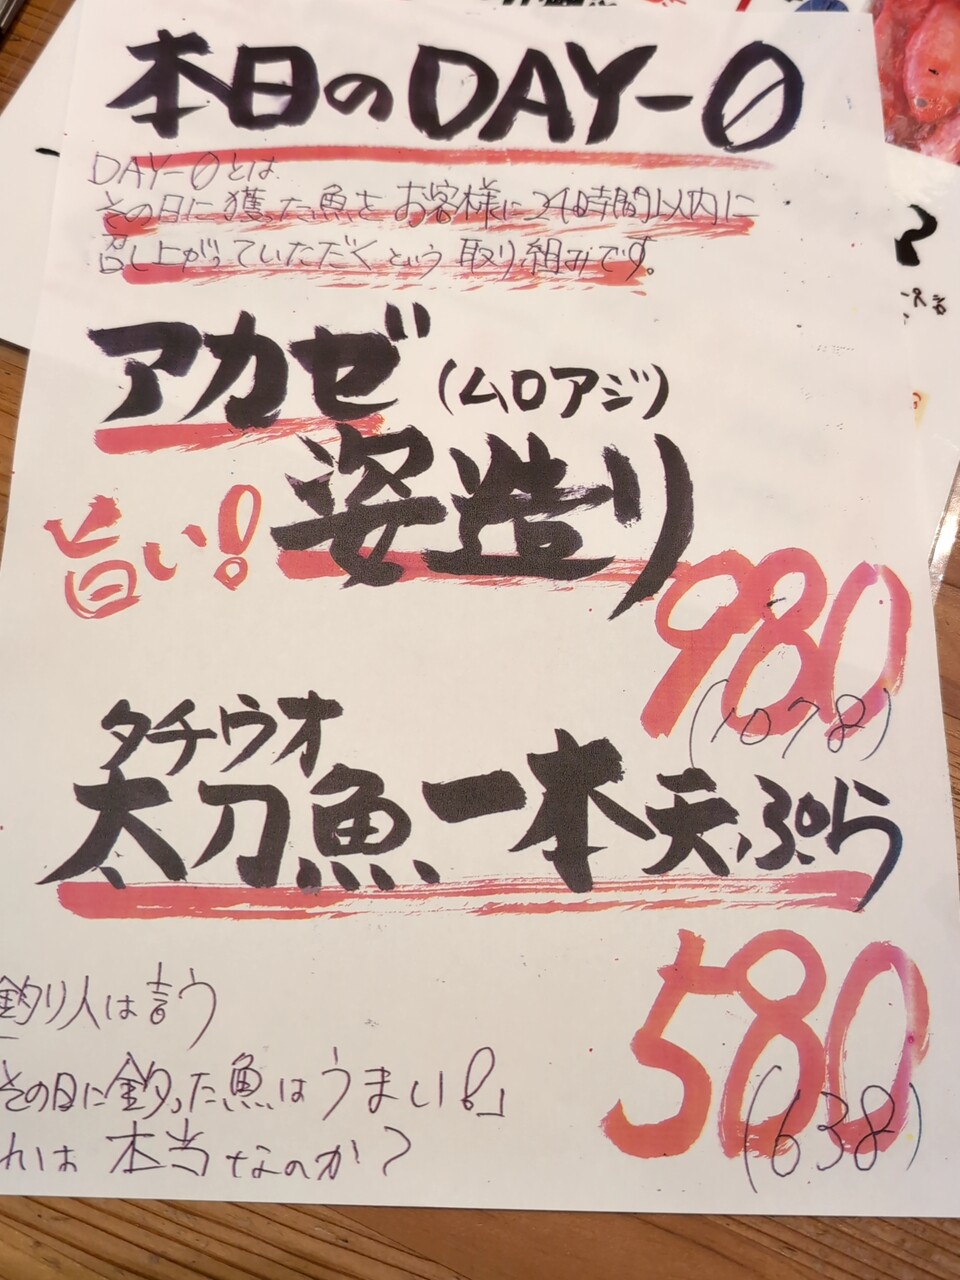 本日のDAY-0
DAY-0とは
その日に獲った魚をお客様に24時間以内に
召し上がっていただくという取り組みです。
アカゼ(ムロアジ)
姿造り
旨い!
980
(1078)
タチウオ
太刀魚一本天ぷら
580
(638)
釣り人は言う
「その日に釣った魚はうまい!」
れは本当なのか?